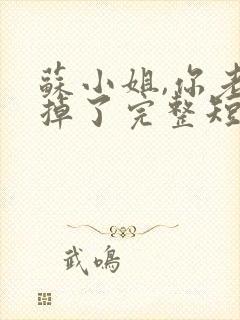 蘇小姐,你老
掉了完整短
武鳴